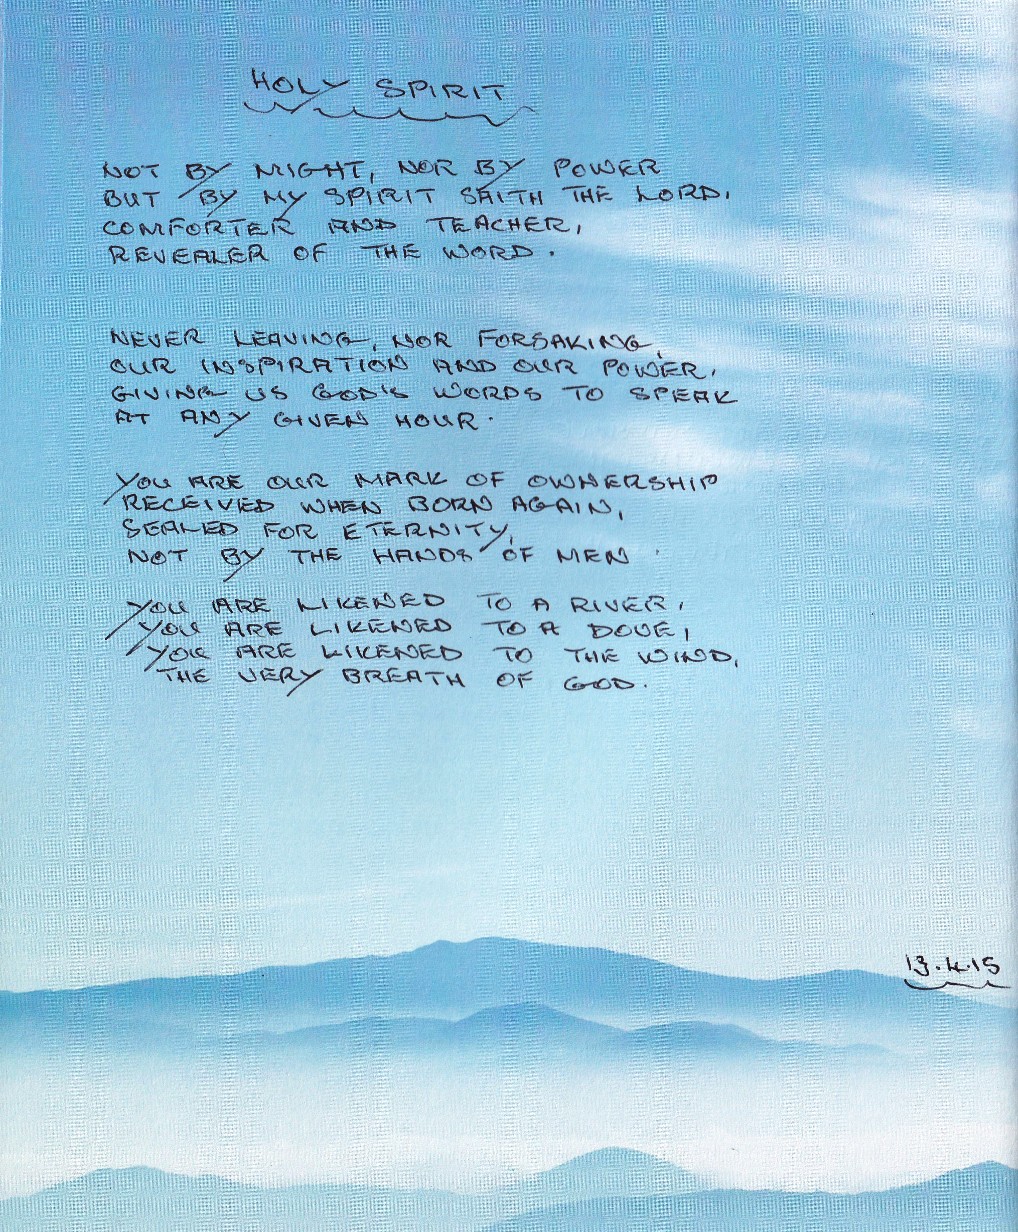 HOLY SPIRIT
NOT BY MIGHT, NOR BY POWER
BUT BY MY SPIRIT SAITH THE LORD,
COMFORTER AND TEACHER,
REVEALER OF THE WORD.
NEVER LEAVING, NOR FORSAKING,
OUR INSPIRATION AND OUR POWER,
GIVING US GOD'S WORDS TO SPEAK
AT ANY GIVEN HOUR.
YOU ARE OUR MARK OF OWNERSHIP
RECEIVED WHEN BORN AGAIN,
SEALED FOR ETERNITY,
NOT BY THE HANDS OF MEN.
YOU ARE LIKENED TO A RIVER,
YOU ARE LIKENED TO A DOVE,
YOU ARE LIKENED TO THE WIND,
THE VERY BREATH OF GOD.
13.4.15